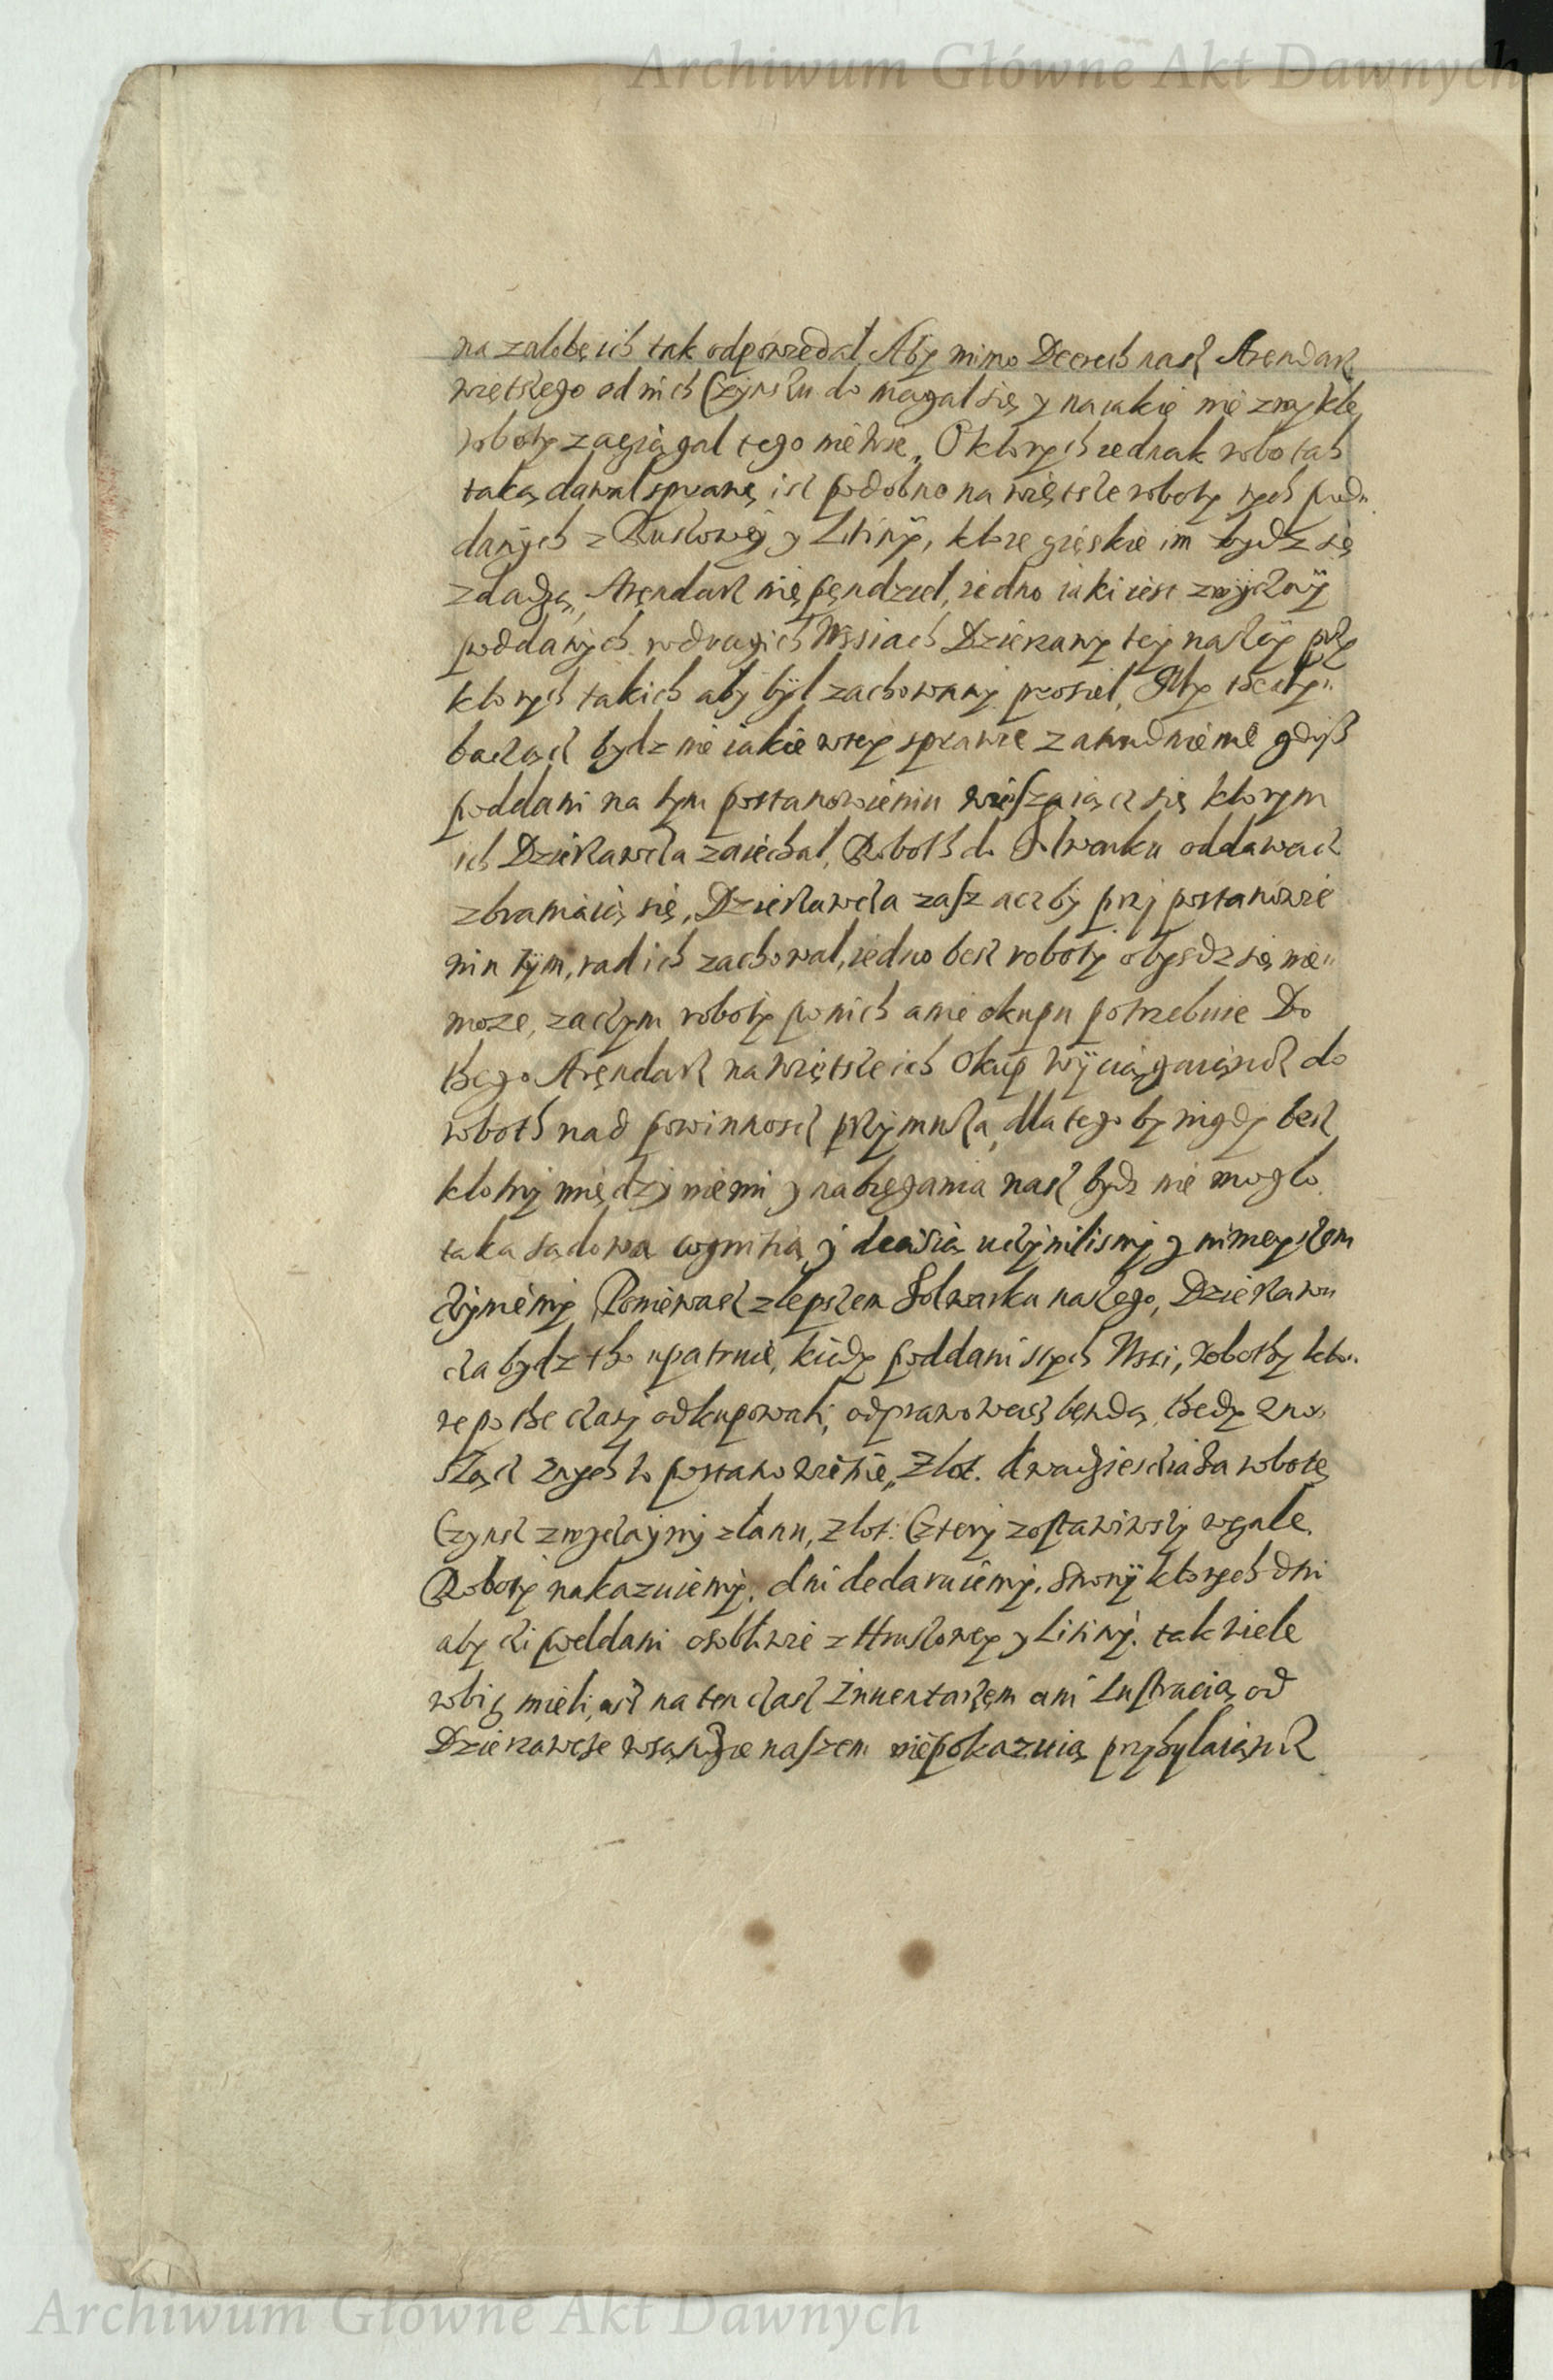 Archiwum Główne Akt Dawnych
na załobę ich tak odpowiedał Aby mimo Decreth nasz Arendarz
więtszego od nich Czynszu do magał się y na iakie nie zwykłe
roboty zaciągał tego niewie, O ktorych iednak robotach
taką dawał sprawę, isz podobno na więtsze roboty tych pod„
danych z Ruszowey y Lisiny, ktore cięskie im bydz się
zdadzą, Arendarz nie pędził, iedno iaki iest zwyczay
poddanych w drugich Wssiach Dzierzawy tey naszey przy
ktorych takich aby był zachowany prosił,
baczącz bydz nie iakie wtey sprawie zatrudnienie gdysz
poddani na tym postanowieniu wieszaiącz się ktorym
ich Dzierzawcza zaiechał, Roboth do Folwarku oddawacz
zbraniaią się, Dzierzawcza zasz aczby przy postanowie
niu tym, rad ich zachował, iedno besz roboty obyśdz się nie„
moze, zaczym roboty po nich a nie okupu potrzebuie Do
thego Arendarz na więtsze ich Okup wyciągaiącz do
roboth nad powinnoscz przymusza, dla tego by nigdy besz
kłotny między niemi y nabiegania nasz bydz nie mogło
taka sądowa cognitią y decisią uczynilismy y ninieyszem
czyniemy, Poniewasz z lepszem Folwarku naszego, Dzierzaw„
cza bydz tho upatruie, kiedy poddani stych Wssi, robothy kto„
re po the czasy odkupowali, odprawowacz będą, thedy zno„
sząc znych to postanowienie, Złot. dwadziescia za robotę
Czynsz zwyczayny z łanu, złot: Cztery zostawiwszy wcale.
Roboty nakazuiemy, dni declaruiemy, strony ktorych dni
aby ci poddani osobliwie z Hruszowey y Lisiny. tak wiele
robic mieli, asz na ten czasz Inuentarzem ani Lustracią od
Dzierzawcze wsądzie naszem niepokazuią, przychylaiącz
Archiwum Główne Akt Dawnych